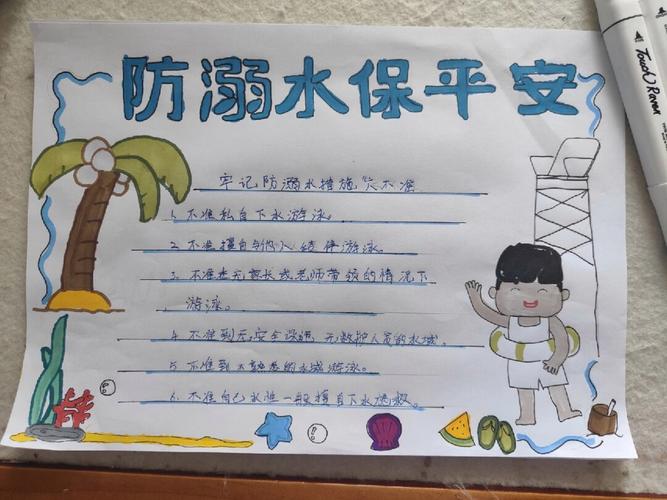 防溺水保平安
牢记防溺水措施"六不准
1. 不准私自下水游泳。
2. 不准擅自与他人结伴游泳。
3. 不准在无家长或老师带领的情况下
游泳。
4. 不准到无安全设施、无救护人员的水域。
5. 不准到不熟悉的水域游泳。
6. 不准自己水性一般擅自下水施救。
Touch Raven